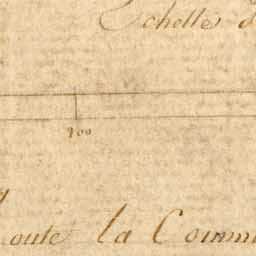 Echelle d
100
oute la Comm